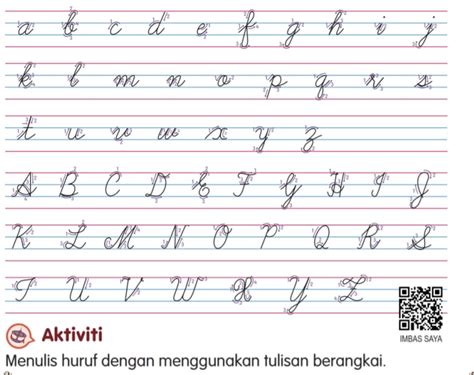 a b c d e f g h i j
k l m n o p q r s
t u v w x y z
A B C D E F G H I J
K L M N O P Q R S
T U V W X Y Z
IMBAS SAYA
Aktiviti
Menulis huruf dengan menggunakan tulisan berangkai.